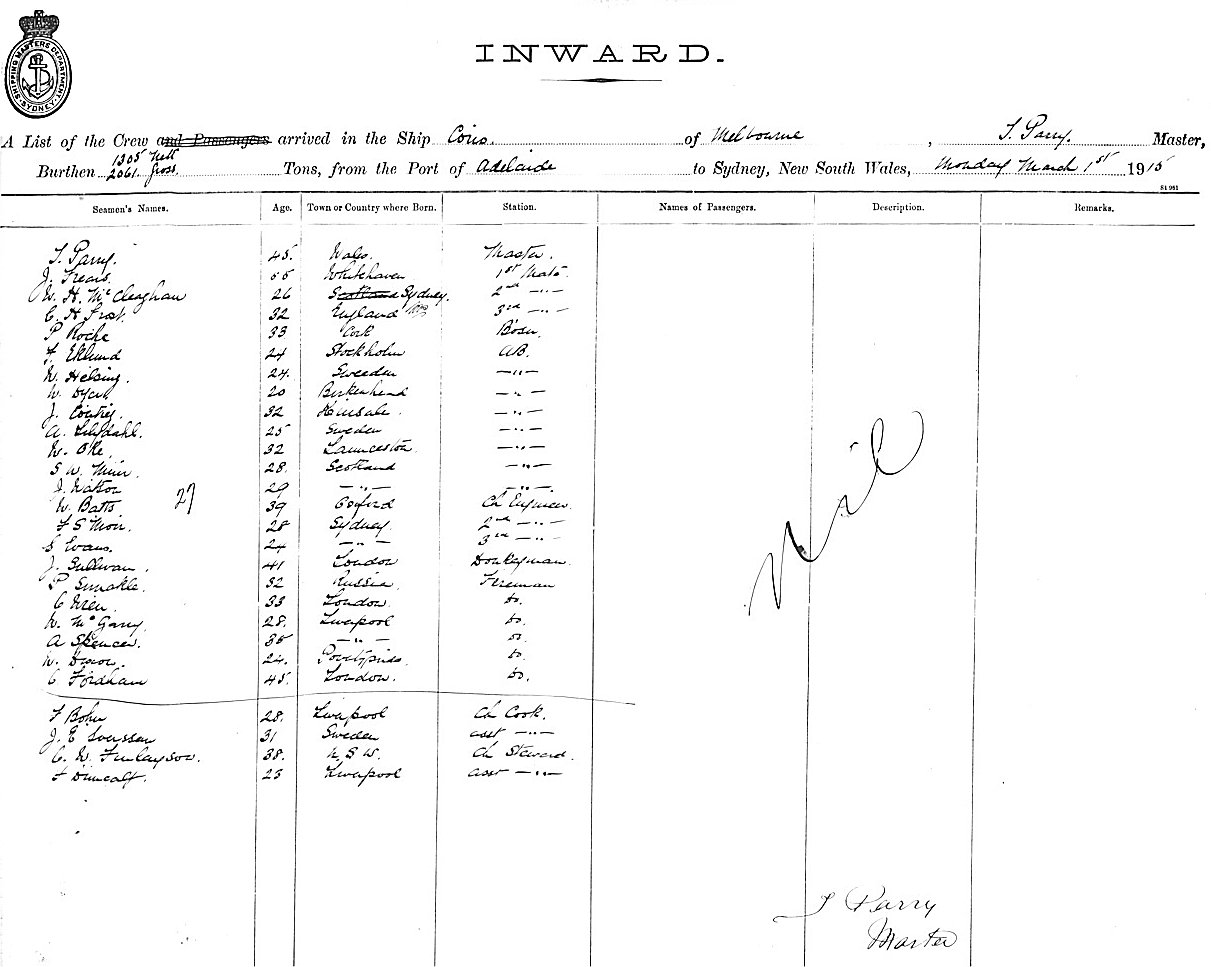 SHIPPING MASTERS DEPARTMENT SYDNEY
INWARD.
A List of the Crew and Passengers arrived in the Ship of Melbourne, T. Parry. Master,
1305 Nett
Burthen 2061 Gross. Tons, from the Port of Adelaide to Sydney, New South Wales, Monday March 1st 1915
St 961
Seamen's Names. Age. Town or Country where Born. Station. Names of Passengers. Description. Remarks.
T. Parry. 45. Wales. Master.
J. 55 Whitehaven 1st Mate
W. H. McCleaghan 26 Scotland Sydney. 2nd -"-
C. H Frost. 32 England 3rd -"-
P Roche 33 Cork Bosun.
F. Eklund 24 Stockholm AB.
W. Helsing. 24. Sweden -"-
W. 20 Birkenhead -"-
J. 32 Kinsale. -"-
A. Liljdahl. 25 Sweden -"-
W. Oke. 32 Launceston. -"-
S W. Muir. 28. Scotland -"-
J. Watson 29 -"- -"-
27
W. Batts 39 Oxford Ch Engineer.
F S Moir. 28 Sydney. 2nd -"-
S Evans. 24 -"- 3rd -"-
J. Sullivan. 41 London Donkeyman.
P 32 Russia. Fireman
C Wren. 33 London. do.
W. McGarry. 28. Liverpool do.
A Spencer. 35 -"- do.
W. 24. do.
C Fordham 45. London. do.
F Bohn 28. Liverpool Ch Cook.
J. E Iverssen 31 Sweden asst -"-
C. W. Finlayson. 38. N.S.W. Ch Steward.
F Duncalf. 23 Liverpool asst -"-
Nil
T Parry
Master